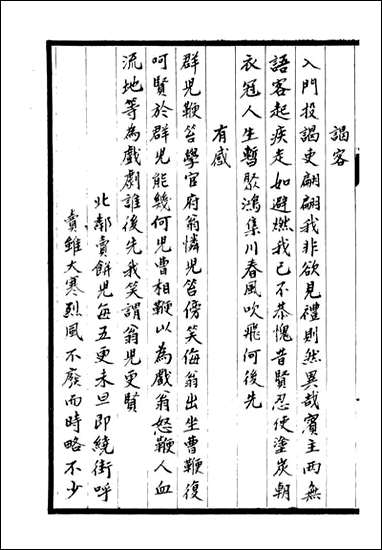 謁客
入門投謁吏翩翩我非欲見禮則然異哉賓主两無
語客起疾走如避燃我已不恭愧昔賢忍使塗炭朝
衣冠人生暫聚鴻集川春風吹飛何後先
有感
群児鞭笞學官府翁憐児笞傍笑侮翁出坐曹鞭復
呵賢於群児能幾何児曹相鞭以為戲翁怒鞭人血
流地等為戲劇誰後先我笑謂翁児更賢
北鄰賣餅児每五更未旦即繞街呼
賣雖大寒烈風不廢而時略不少